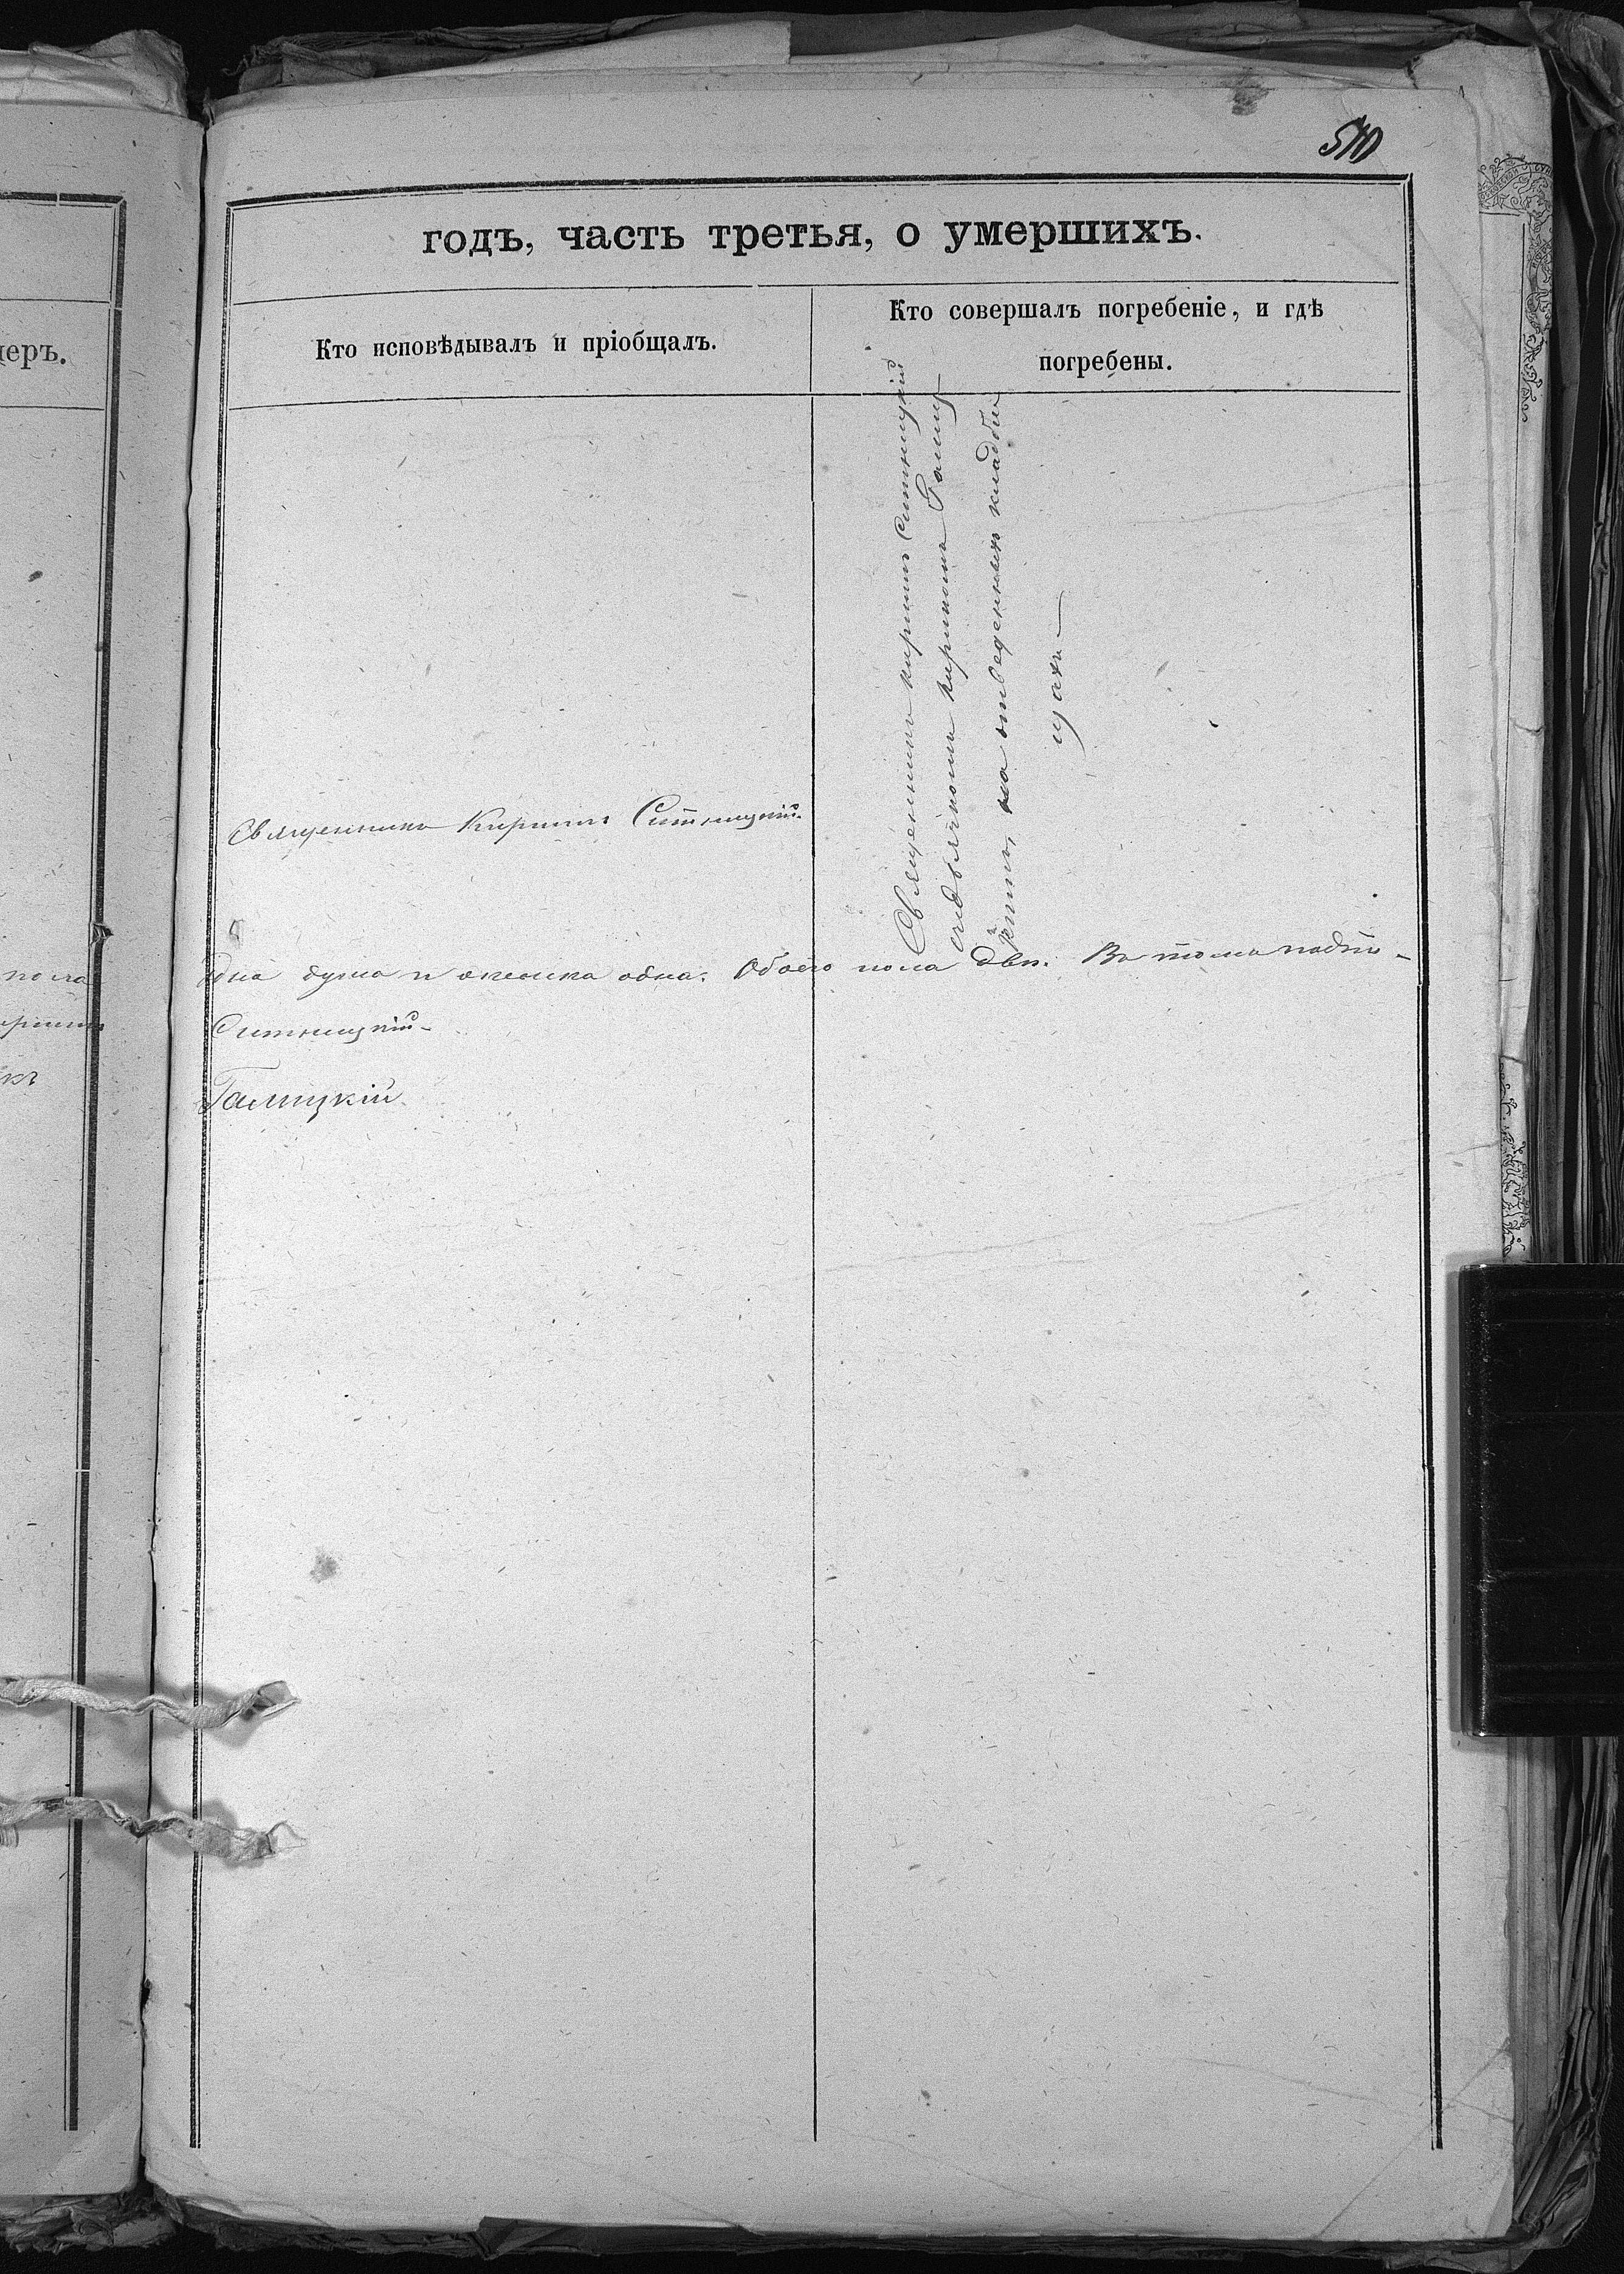 510
годъ, часть третья, о умершихъ.
меръ.
Кто исповѣдывалъ и пріобщалъ.
Кто совершалъ погребеніе, и гдѣ
погребены.
Священникъ Кириллъ Ситницкій
съ дьячкомъ Кирилломъ Галиц-
кимъ, на отведенномъ кладби-
щахъ
Священникъ Кириллъ Ситницкій.
пола
одна душа и женска одна. Обоего пола двѣ. Въ томъ подпи-
Ситницкій
Галицкій